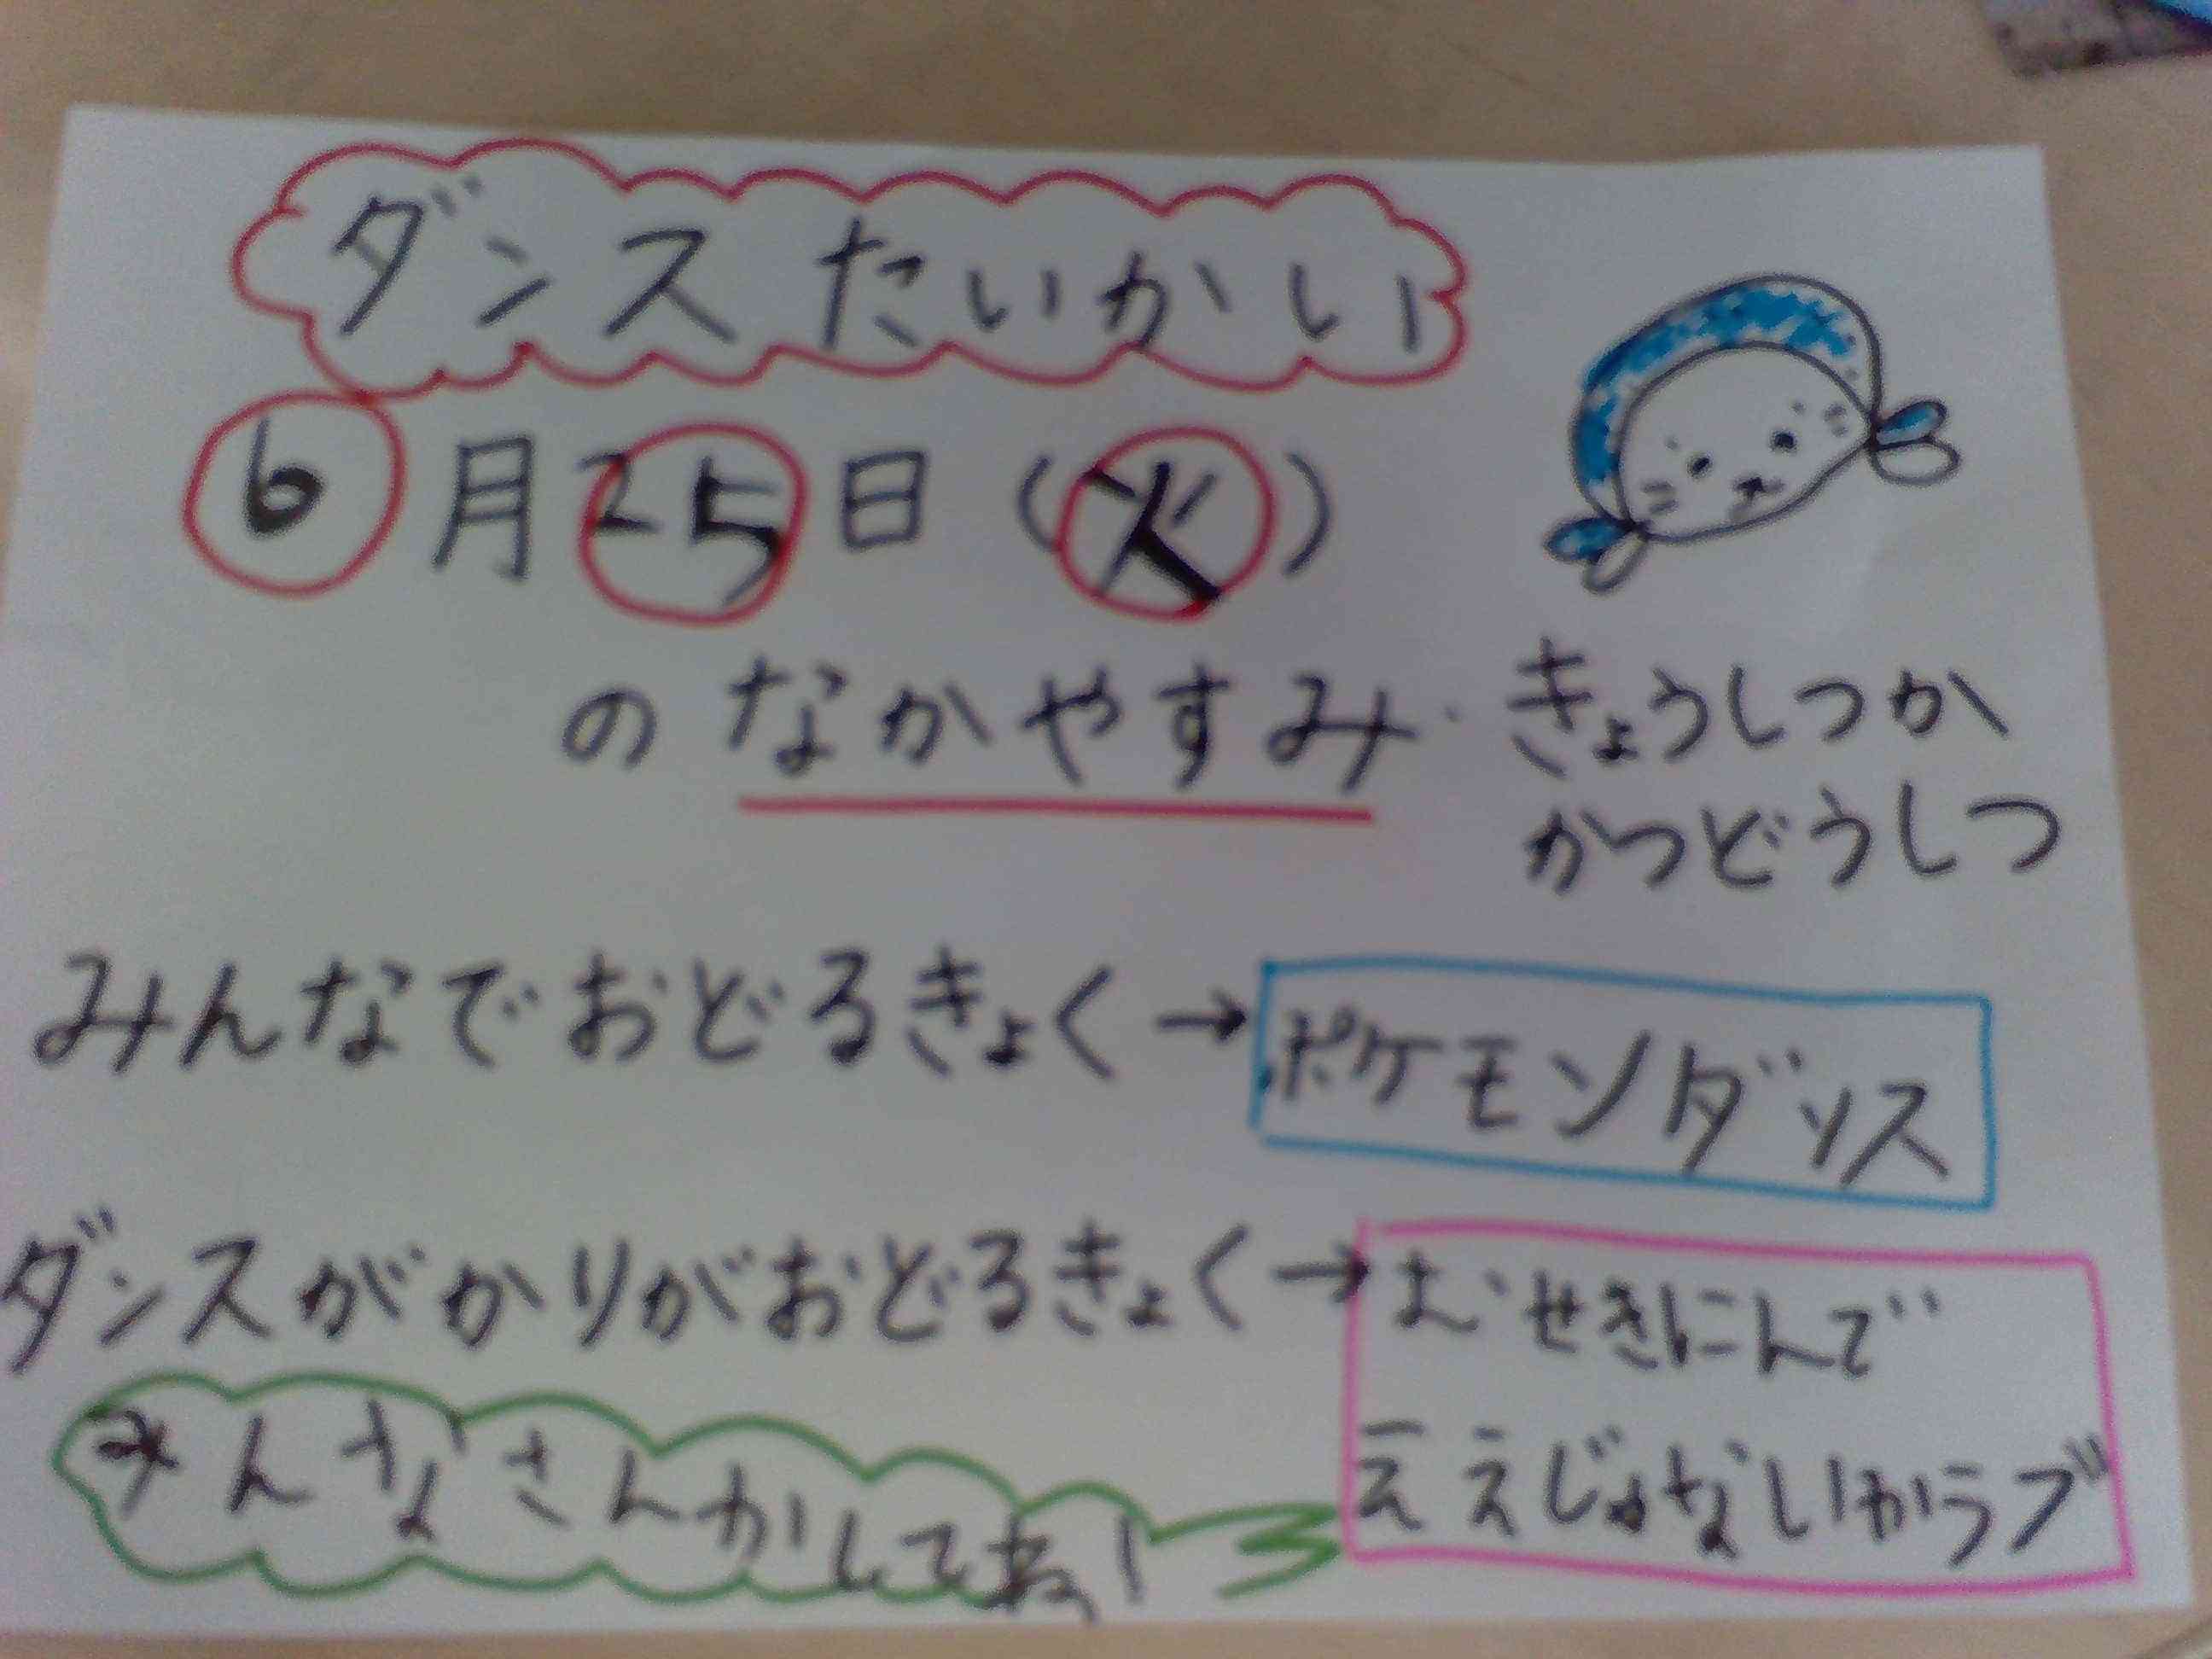 ダンスたいかい
6月25日(火)
のなかやすみ きょうしつか
かつどうしつ
みんなでおどるきょく→ポケモンダンス
ダンスがかりがおどるきょく→むせきにんで
ええじゃないかラブ
みんなさんかしてね!